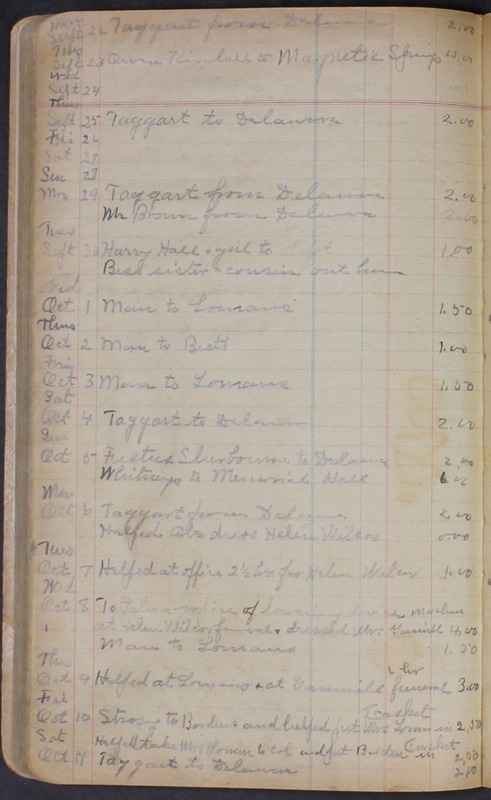 Mon
Sept 22 Taggart from Delaware 2.00
Tues
Sept 23 Owen Kimball to Magnetic Springs 4.00
Wed
Sept 24
Thus
Sept 25 Taggart to Delaware 2.00
Fri 26
Sat 27
Sun 28
Mon 29 Taggart from Delaware 2.00
Mr Brown from Delaware 2.00
Tues
Sept 30 Harry Hall & girl to 1.00
Best sister & cousin out
Wed
Oct 1 Man to Lomans 1.50
Thus
Oct 2 Man to Bests 1.00
Fri
Oct 3 Man to Lomans 1.50
Sat
Oct 4 Taggart to Delaware 2.00
Sun
Oct 5 Festus Sherbourne to Delaware 2.00
to Memorial Hall
Mon
Oct 6 Taggart from Delaware 2.00
Helped Abe dress Helen Wilcox 0.00
Tues
Oct 7 Helped at office 2½ hrs for Helen Wilcox 1.00
Wed
Oct 8 To Delaware of lowering device
at Helen Wilcox funeral & dressed Mrs 4.00
Man to Lomans 1.50
Thus hr
Oct 9 Helped at Lomans & at funeral 3.00
Fri Casket
Oct 10 to Borders and helped put Mrs Loman in 2.50
Sat Casket
Helped take Mrs Loman to and put Borden in 2.00
Oct 11 Taggart to Delaware 2.00